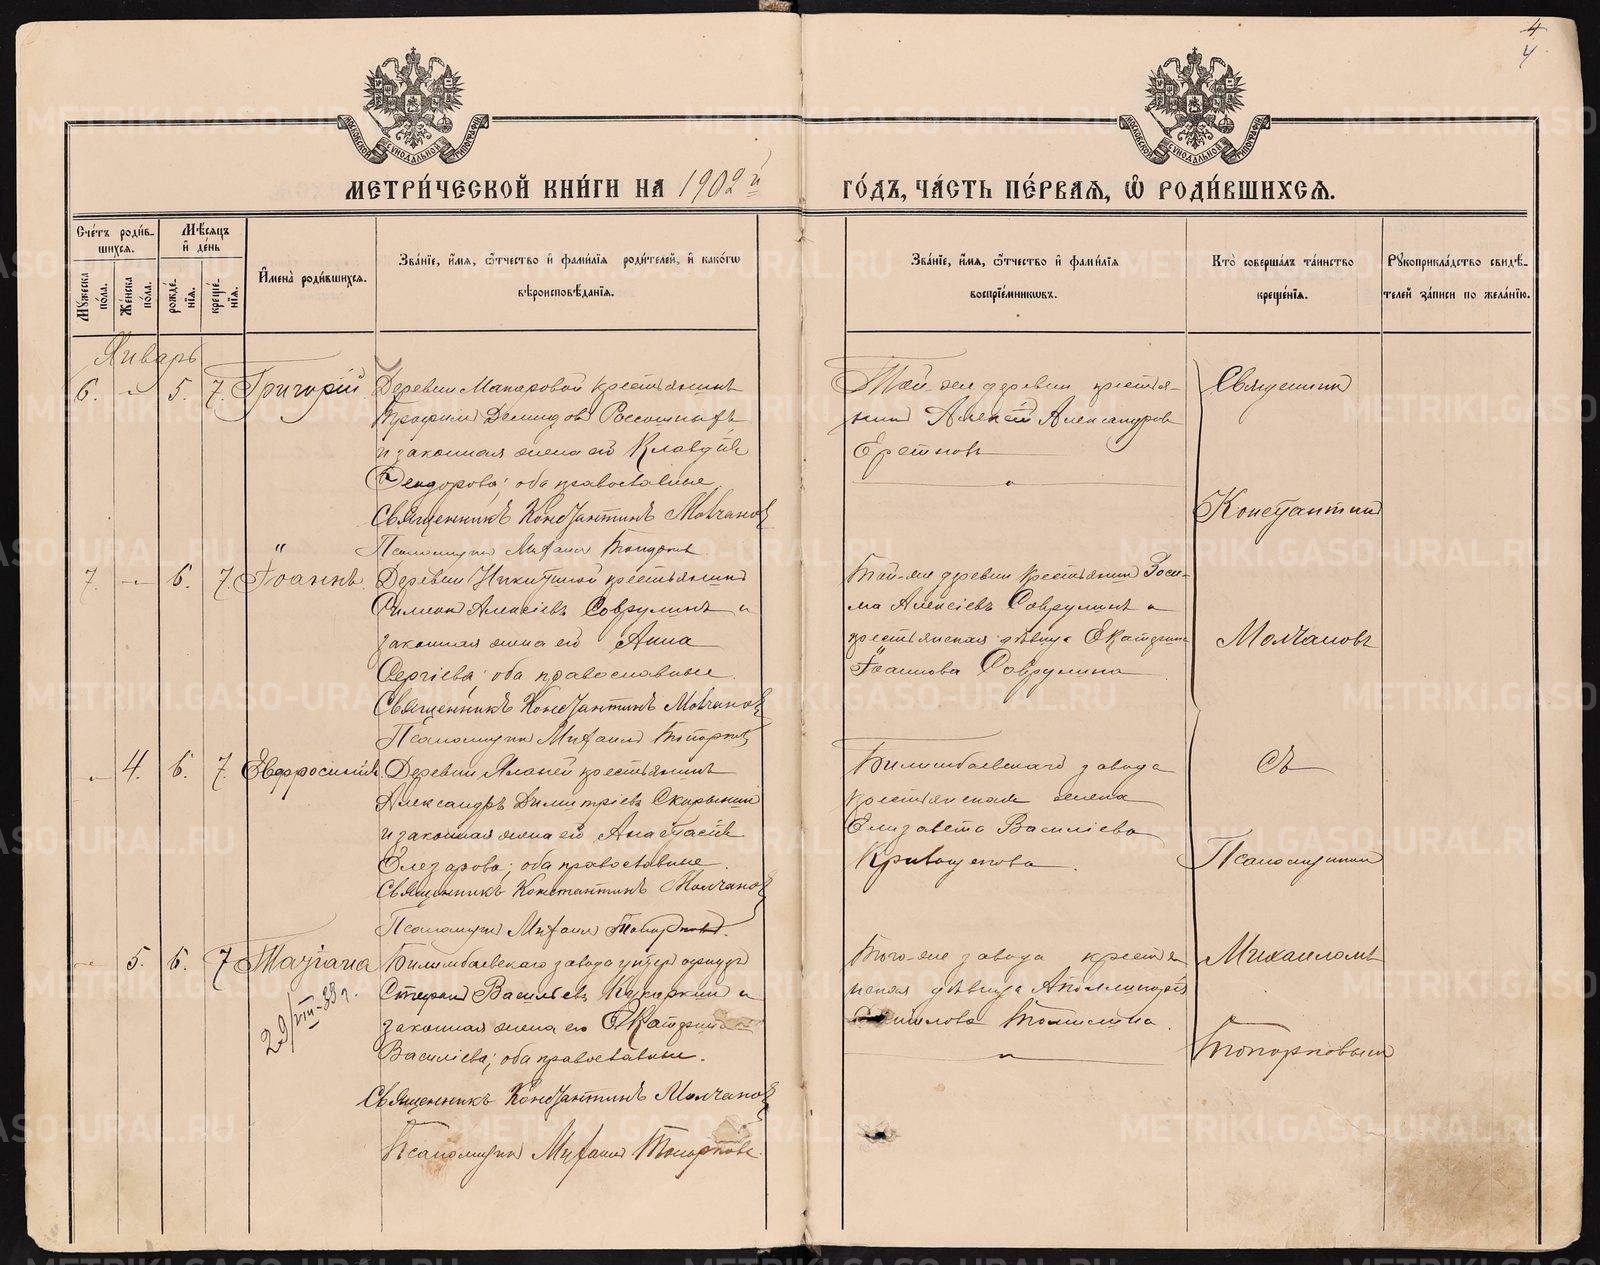 4
4
МОСКОВСКОЙ СѴНОДАЛЬНОЙ ТИПОГРАФІИ
МОСКОВСКОЙ СѴНОДАЛЬНОЙ ТИПОГРАФІИ
МЕТРИ́ЧЕСКОЙ КНИ́ГИ НА 1902 й
ГО́ДЪ, ЧА́СТЬ ПЕ́РВАЯ, Ѡ РОДИ́ВШИХСЯ.
Сче́тъ роди́вшихся.
Му́жеска по́ла.
Же́нска по́ла.
Мѣ́сяцъ и де́нь
рожде́нїя.
креще́нїя.
И҆мена̀ роди́вшихся.
Зва́нїе, и҆́мя, ѻ҆́тчество и҆ фами́лїя роди́телей, и҆ како́гѡ
вѣроисповѣ́данїя.
Зва́нїе, и҆́мя, ѻ҆́тчество и҆ фами́лїя
воспрїе́мникѡвъ.
Кто̀ соверша́лъ та́инство
креще́нїя.
Рꙋкоприкла́дство свидѣ́телей за́писи по жела́нїю.
Январь
6. - 5. 7. Григорій
Деревни Макаровой крестьянинъ
Демидовъ
и законная жена его Клавдія
Феодорова; оба православные.
Священникъ Константинъ Молчановъ
Псаломщикъ Михаилъ Топорковъ
Той-же деревни крестья-
нинъ Алексѣй Александровъ
7. - 6. 7. Іоаннъ
Деревни Никитиной крестьянинъ
Симеонъ Алексіевъ Соврулинъ и
законная жена его Анна
Сергіева; оба православные.
Священникъ Константинъ Молчановъ
Псаломщикъ Михаилъ Топорковъ
Той-же деревни крестьянинъ Зоси-
ма Алексіевъ Соврулинъ и
крестьянская дѣвица Екатерина
Іоаннова Соврулина
- 4. 6. 7. Евфросинія
Деревни крестьянинъ
Александръ Димитріевъ Скорынинъ
и законная жена его Анастасія
Елеазарова; оба православные.
Священникъ Константинъ Молчановъ
Псаломщикъ Михаилъ Топорковъ.
Билимбаевскаго завода
крестьянская жена
Елизавета Василіева
Кривощекова.
- 5. 6. 7. Татіана
29/VIII-33 г.
Билимбаевскаго завода унтеръ офицеръ
Стефанъ Василіевъ и
законная жена его Екатерина
Василіева; оба православные.
Священникъ Константинъ Молчановъ
Псаломщикъ Михаилъ Топорковъ.
Того-же завода крестья
нская дѣвица Аполлинарія
Священникъ
Константинъ
Молчановъ
съ
Псаломщикомъ
Михаиломъ
Топорковымъ
METRIKI.GASO-URAL.RU